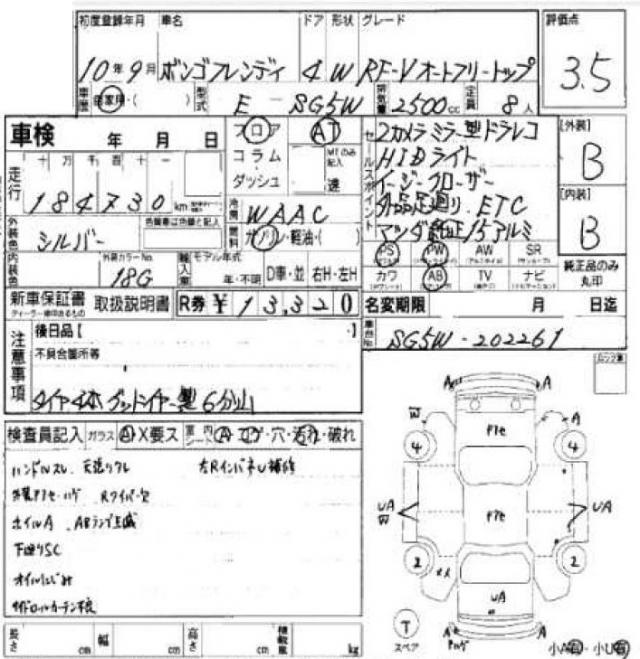 初度登録年月 車名 ドア 形状 グレード 評価点
10年9月 ボンゴフレンディ 4 W RF-Vオートフリートップ 3.5
車歴 自家用・( ) 型式 E - SG5W 排気量 2500cc 定員 8人
車検 年 月 日
フロア AT
コラム MTのみ記入
ダッシュ 速
セールスポイント
2カメラミラー型ドラレコ
HIDライト
イージークローザー
外品足廻り. ETC
マツダ純正15アルミ
[外装] B
[内装] B
走行 十 万 千 百 十 一
184730km
冷房 WAAC
外装色 シルバー 色替車は色替と記入
燃料 ガソリン・軽油・( )
内装色 外装カラーNo. 18G
輸入車 モデル年式 年・不明 D車・並 右H・左H
PS PW AW SR
カワ AB TV ナビ
純正品のみ丸印
新車保証書 取扱説明書 R券 ¥ 13,320
名変期限 月 日迄
車台No. SG5W-202261
注意事項
後日品【 】
不具合箇所等
タイヤ4本グッドイヤー製 6分山
検査員記入 ガラス A・X要ス 室内シート A・コゲ・穴・汚れ・破れ
ハンドルスレ. 天張りクレ 左RインパネU補修
ホイルA . ABランプ点滅
下廻りSC
オイルにじみ
長さ cm 幅 cm 高さ cm 積載量 kg
A A
W A
4 アセ 4
UA W アセ UA
2 2
UA
T スペア A A
小A有・小U有